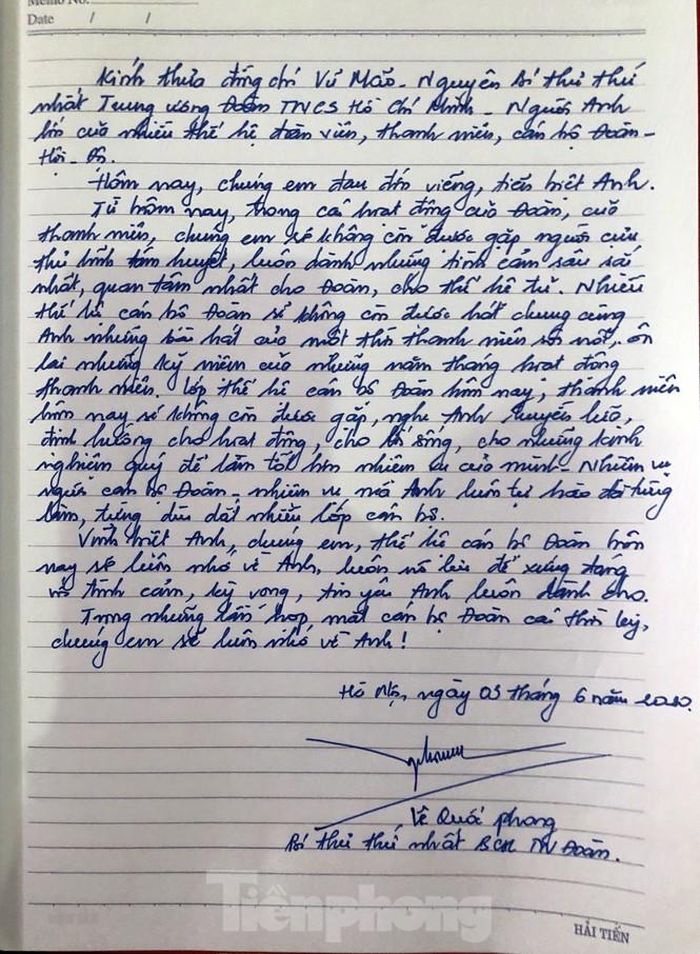 Memo No.
Date / /
Kính thưa đồng chí Vũ Mão - Nguyên Bí thư thứ
nhất Trung ương Đoàn TNCS Hồ Chí Minh - Người Anh
lớn của nhiều thế hệ đoàn viên, thanh niên, cán bộ Đoàn -
Hội - Đội.
Hôm nay, chúng em đau đớn viếng, tiễn biệt Anh.
Từ hôm nay, trong các hoạt động của Đoàn, của
thanh niên, chúng em sẽ không còn được gặp người cựu
thủ lĩnh tâm huyết, luôn dành những tình cảm sâu sắc
nhất, quan tâm nhất cho Đoàn, cho thế hệ trẻ. Nhiều
thế hệ cán bộ Đoàn sẽ không còn được hát chung cùng
Anh những bài hát của một thời thanh niên sôi nổi, ôn
lại những kỷ niệm của những năm tháng hoạt động
thanh niên. Lớp thế hệ cán bộ Đoàn hôm nay, thanh niên
hôm nay sẽ không còn được gặp, nghe Anh khuyên bảo,
định hướng cho hoạt động, cho lối sống, cho những kinh
nghiệm quý để làm tốt hơn nhiệm vụ của mình - Nhiệm vụ
người cán bộ Đoàn - nhiệm vụ mà Anh luôn tự hào đã từng
làm, từng dìu dắt nhiều lớp cán bộ.
Vĩnh biệt Anh, chúng em, thế hệ cán bộ Đoàn hôm
nay sẽ luôn nhớ về Anh, luôn nỗ lực để xứng đáng
với tình cảm, kỳ vọng, tin yêu Anh luôn dành cho.
Trong những lần họp mặt cán bộ Đoàn các thời kỳ,
chúng em sẽ luôn nhớ về Anh!
Hà Nội, ngày 03 tháng 6 năm 2020.
Lê Quốc Phong
Bí thư thứ nhất BCH TW Đoàn.
Tiênphong
HẢI TIẾN